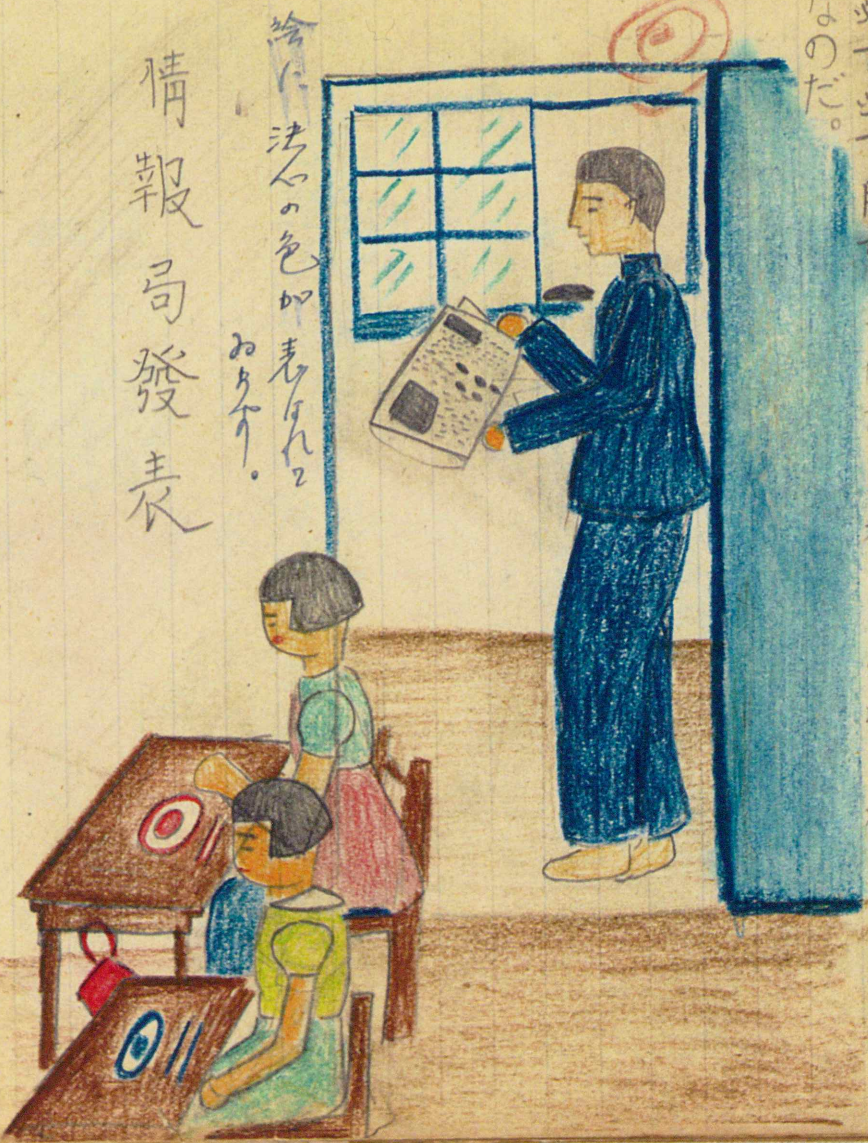 なのだ。
絵に決心の色が表はれて
ゐます。
情報局發表